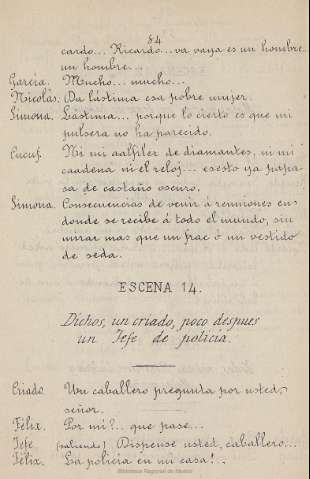 84
cardo... Ricardo... va vaya es un hombre
un hombre...
García. Mucho... mucho...
Nicolás. Da lástima esa pobre mujer.
Simona. Lástima... porque lo cierto es que mi
pulsera no ha parecido.
Cucuf. Ni mi aalfiler de diamantes, ni mi
caadena ni el reloj... esesto ya papa-
sa de castaño oscuro.
Simona. Consecuencias de venir á reuniones en
donde se recibe á todo el mundo, sin
mirar mas que un frac ó un vestido
de seda.
ESCENA 14.
Dichos, un criado, poco despues
un Jefe de policía.
Criado. Un caballero pregunta por usted,
señor.
Félix. Por mi?.. que pase...
Jefe. (saliendo) Dispense usted, caballero...
Félix. La policía en mi casa!..
Biblioteca Regional de Madrid